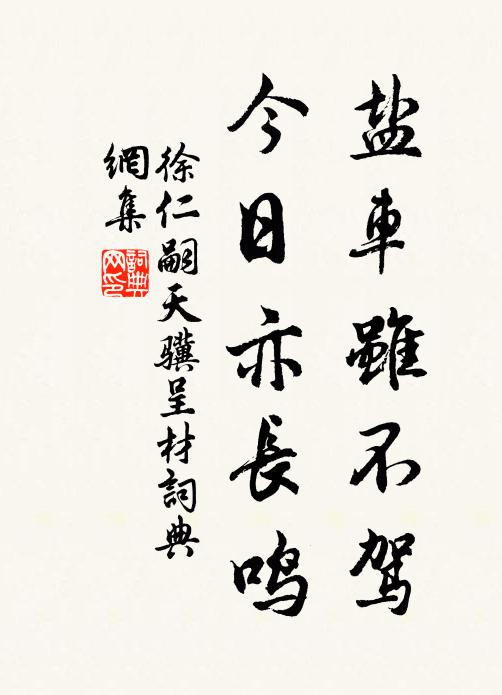 盐車雖不駕
今日亦長鳴
徐仁嗣天驥呈材詞典
網集
詞典网印